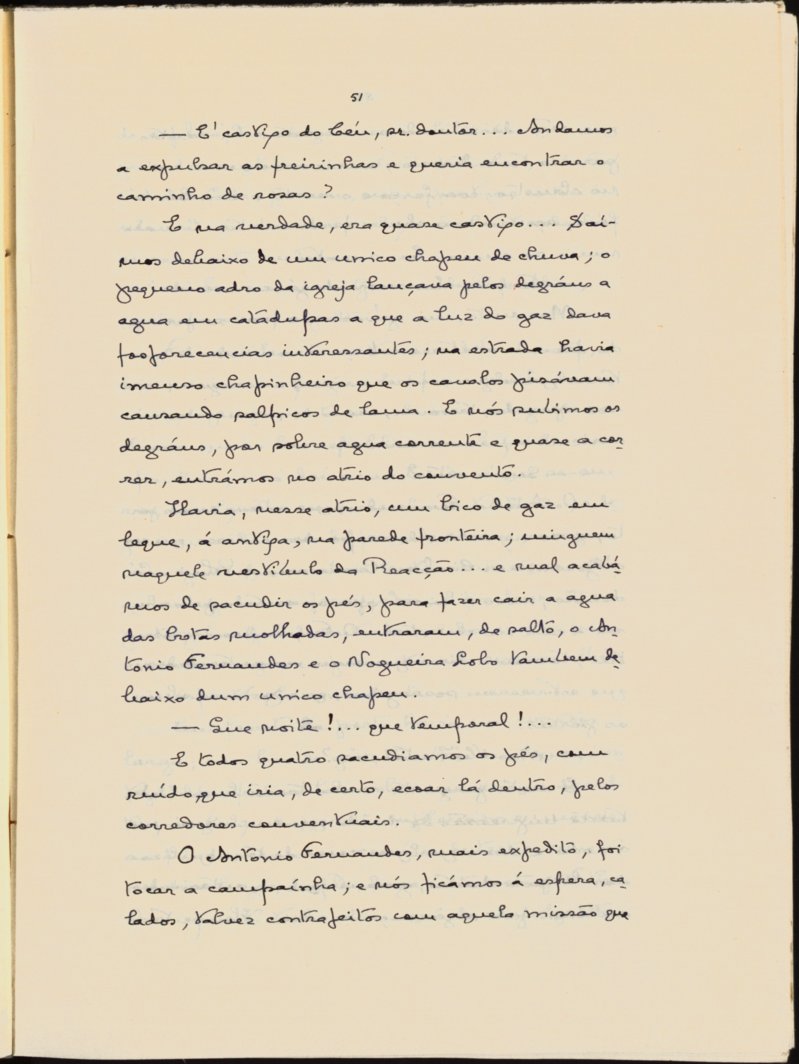 51
— E' castigo do Céu, sr. doutor... Andamos
a expulsar as freirinhas e queria encontrar o
caminho de rosas?
E na verdade, era quase castigo... Saí-
mos debaixo de um unico chapeu de chuva; o
pequeno adro da igreja lançava pelos degráus a
agua em catadupas a que a luz do gaz dava
fosforecencias interessantes; na estrada havia
imenso chapinheiro que os cavalos pisávam
causando salpicos de lama. E nós subimos os
degráus, por sobre agua corrente e quase a cor-
rer, entrámos no atrio do convento.
Havia, nesse atrio, um bico de gaz em
leque, á antiga, na parede fronteira; ninguem
naquele vestibulo da Reacção... e mal acabá-
mos de sacudir os pés, para fazer cair a agua
das botas molhadas, entraram, de salto, o An-
tonio Fernandes e o Nogueira Lobo tambem de-
baixo dum unico chapeu.
— Que noite!... que temporal!...
E todos quatro sacudiamos os pés, com
ruído, que iria, de certo, ecoar lá dentro, pelos
corredores conventuais.
O Antonio Fernandes, mais expedito, foi
tocar a campaínha; e nós ficámos á espera, ca-
lados, talvez contrafeitos com aquela missão que